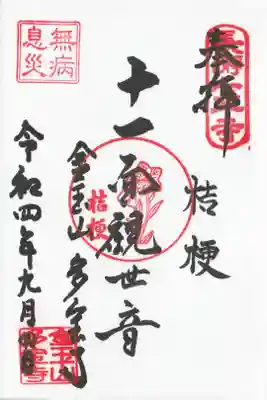 奉拝
桔梗
十一面観世音
桔梗
金玉山多宝寺
令和四年九月四日
無病
息災